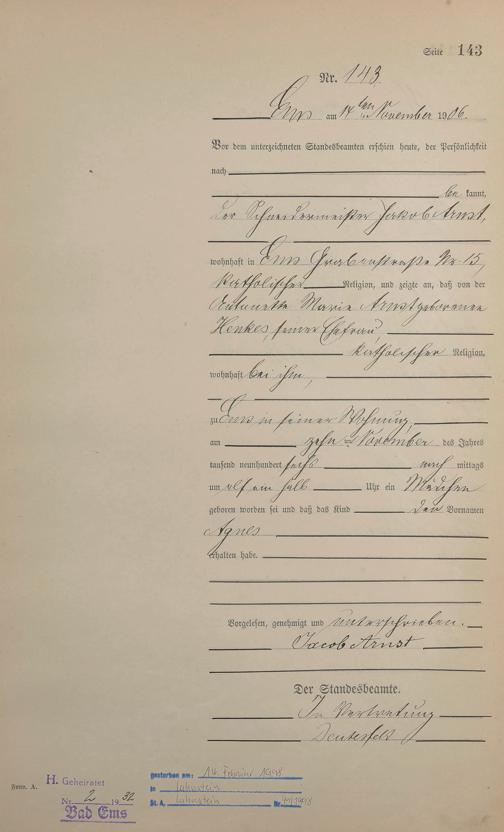 Seite 143
Nr. 143
Ems am 14ten November 1906.
Vor dem unterzeichneten Standesbeamten erschien heute, der Persönlichkeit
nach
be kannt,
der Schneidermeister Jakob Arnst,
wohnhaft in Ems Grabenstraße Nr. 15,
katholischer Religion, und zeigte an, daß von der
Antonette Marie Arnst geborenen
Henkes, seiner Ehefrau
katholischer Religion,
wohnhaft bei ihm,
zu Ems in seiner Wohnung,
am zehnten November des Jahres
tausend neunhundert sechs nach mittags
um elf ein halb Uhr ein Mädchen
geboren worden sei und daß das Kind den Vornamen
Agnes
erhalten habe.
Vorgelesen, genehmigt und unterschrieben.
Jacob Arnst
Der Standesbeamte.
In Vertretung
Form. A.
H. Geheiratet
Nr. 2 1932
Bad Ems
gestorben am: 14. Februar 1998
in Lahnstein
St. A. Lahnstein Nr.